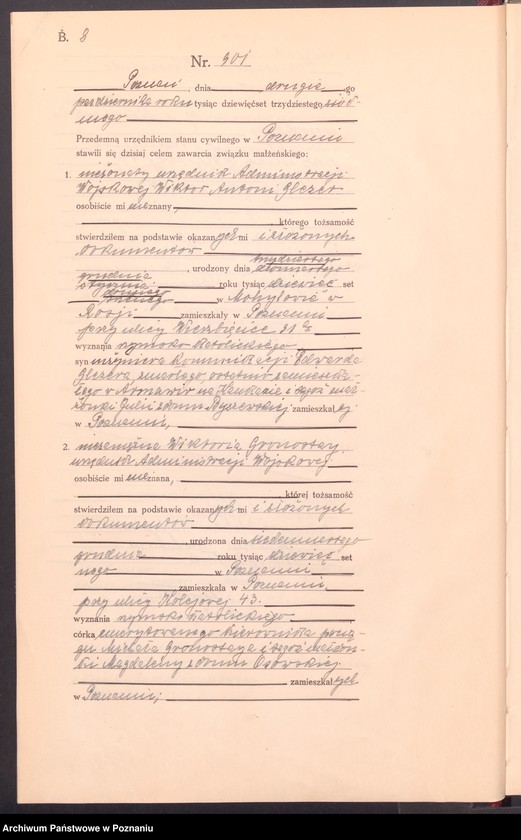 B. 8
Nr. 301
Poznań, dnia drugiego
października roku tysiąc dziewięćset trzydziestego siód-
mego
Przedemną urzędnikiem stanu cywilnego w Poznaniu
stawili się dzisiaj celem zawarcia związku małżeńskiego:
1. nieżonaty urzędnik Administracji
Wojskowej Wiktor Antoni Glezer
osobiście mi nieznany,
, którego tożsamość
stwierdziłem na podstawie okazanych mi i złożonych
dokumentów
trzydziestego
grudnia, urodzony dnia
stycznia roku tysiąc dziewięć set
w Mohylowie w
Rosji zamieszkały w Poznaniu
przy ulicy Wierzbięcice
wyznania rzymsko katolickiego
syn inżyniera komunikacji Edwarda
Glezera zmarłego, ostatnio zamieszka-
łego w Armawir na Kaukazie i tegoż mał-
żonki Julii z domu Ryszewskiej zamieszkałej
w Poznaniu,
2. niezamężna Wiktoria Gronostaj
urzędnik Administracji Wojskowej
osobiście mi nieznana,
, której tożsamość
stwierdziłem na podstawie okazanych mi i złożonych
dokumentów
, urodzona dnia siedemnastego
grudnia roku tysiąc dziewięć set
w Poznaniu
, zamieszkała w Poznaniu,
przy ulicy Kolejowej 43.
wyznania rzymsko katolickiego
córka emerytowanego kierownika pocią-
gu Michała Gronostaja i tegoż małżon-
ki Magdaleny z domu Osowskiej
zamieszkałych
w Poznaniu;
Archiwum Państwowe w Poznaniu